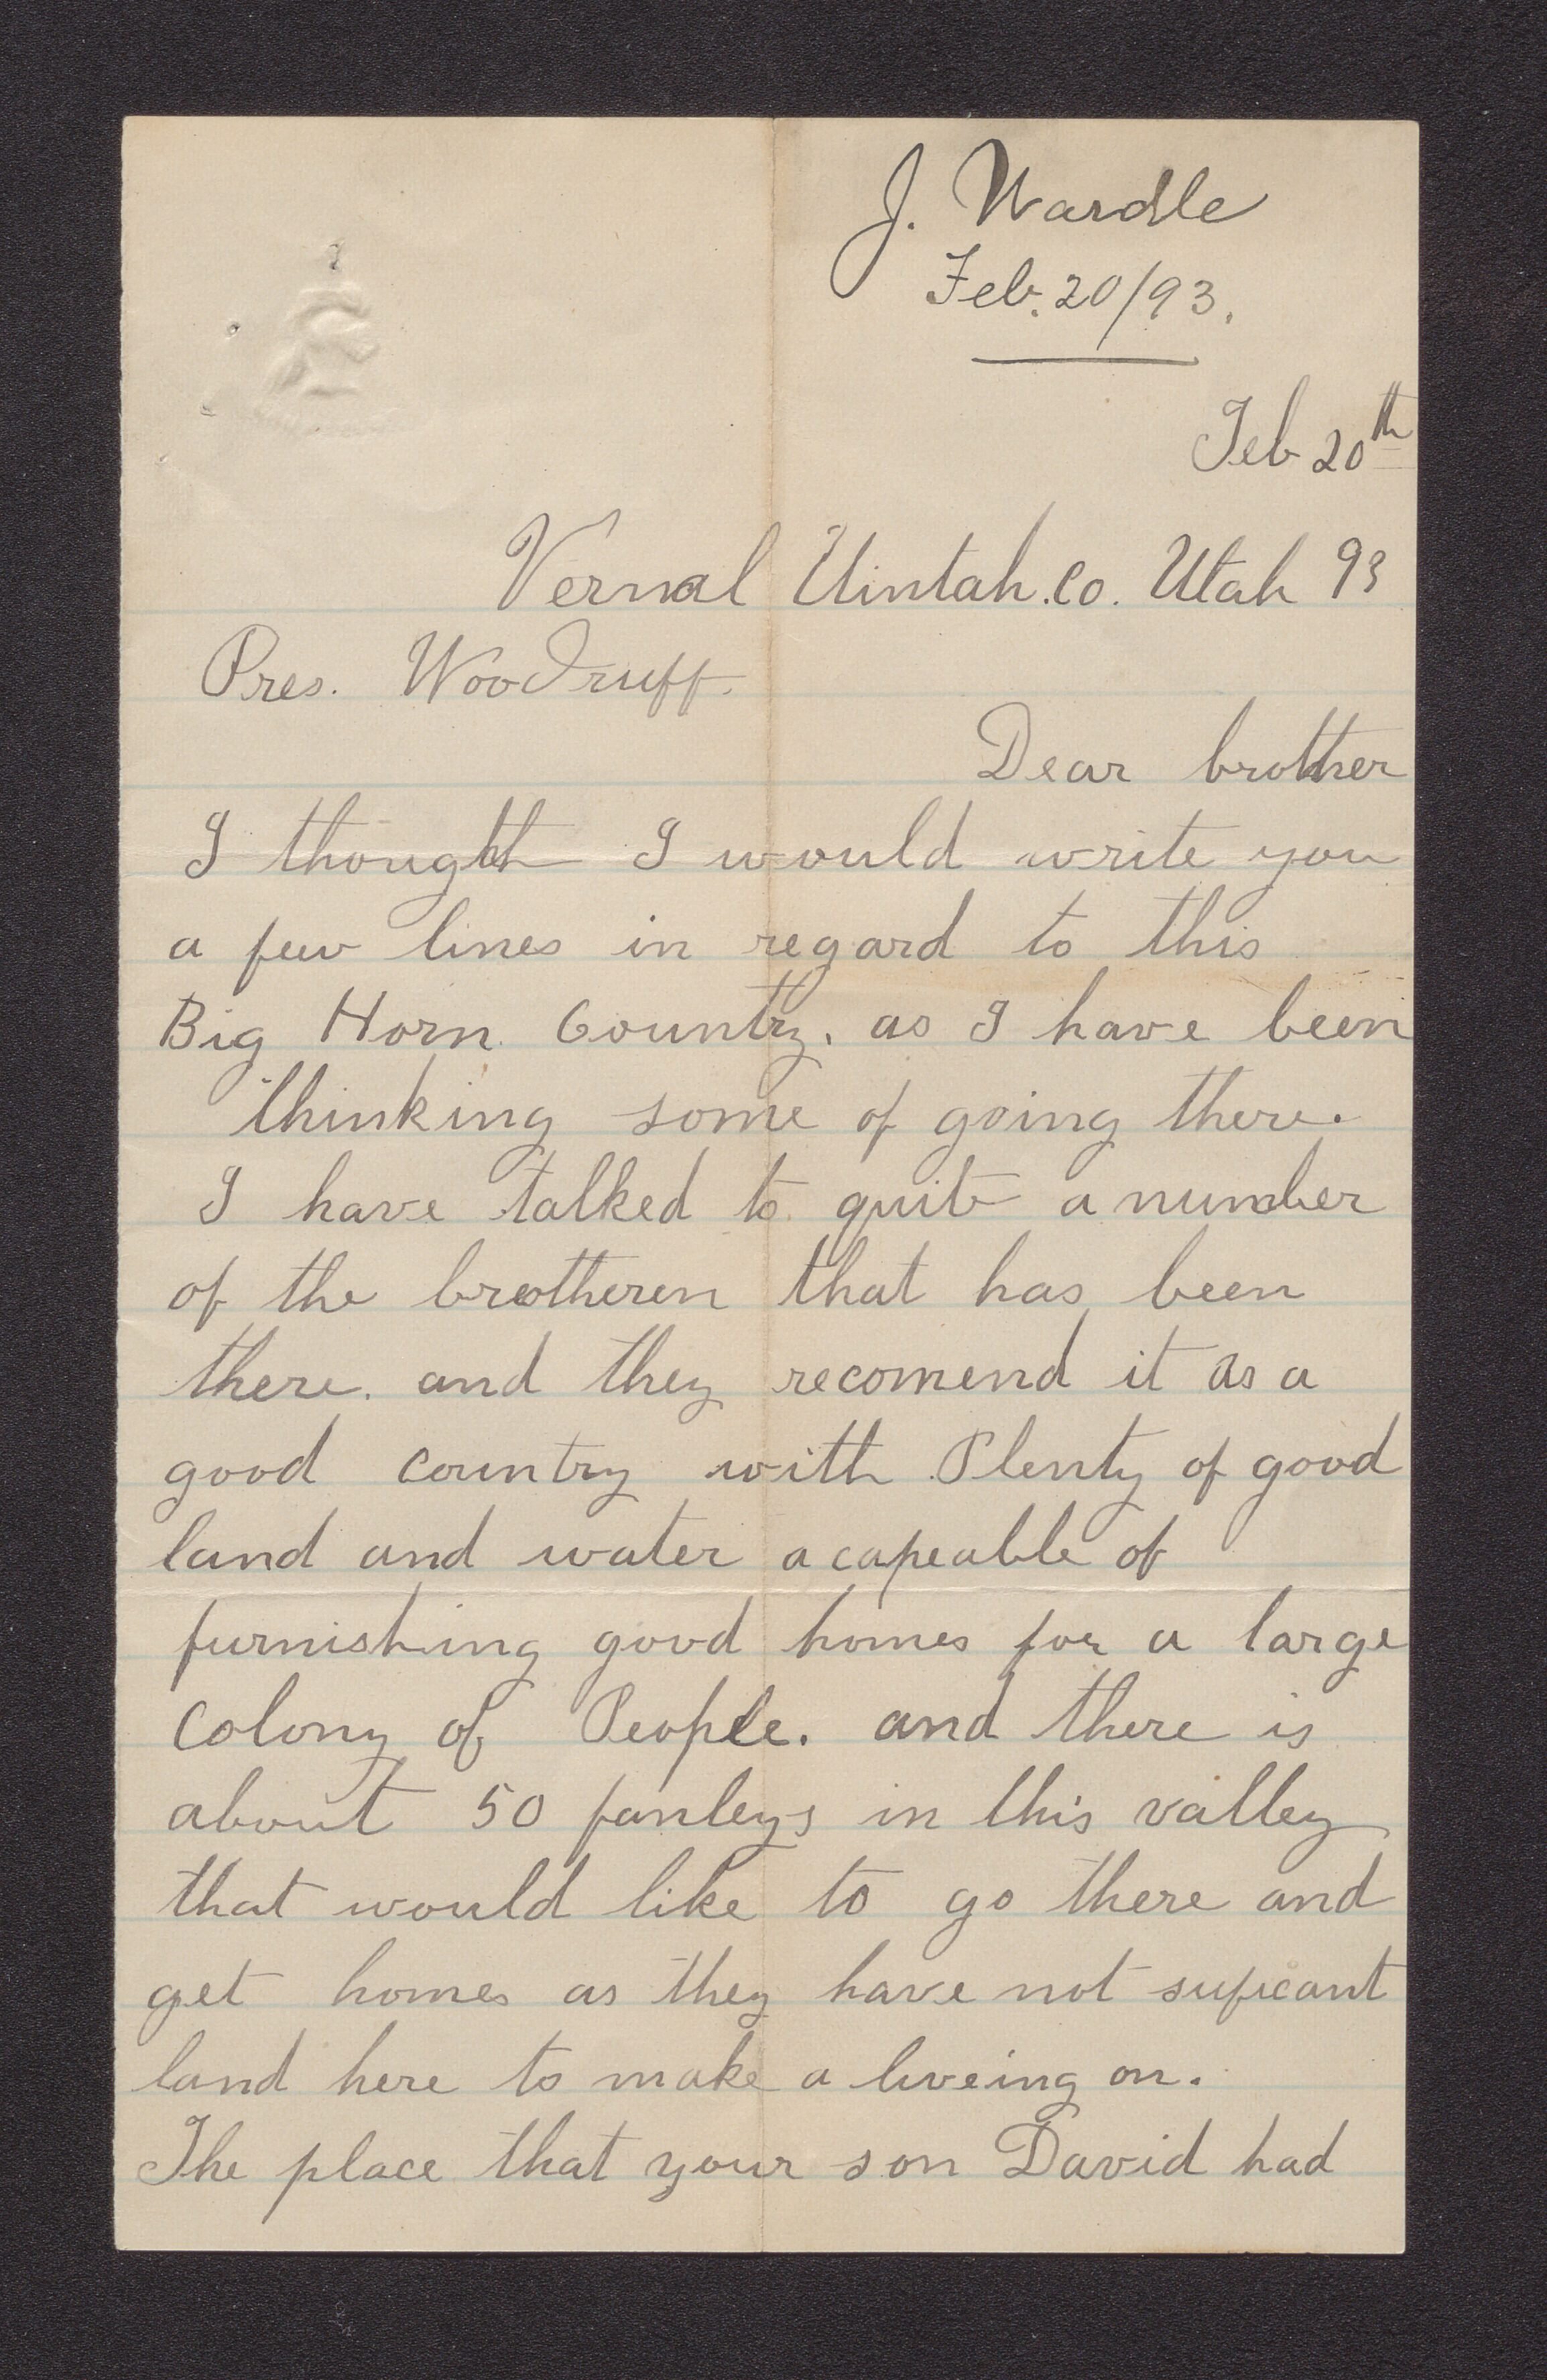 J. Wardle
Feb. 20/93.
Feb 20th
Vernal Uintah.Co. Utah 93
Pres. Woodruff.
Dear brother
I thought I would write you
a few lines in regard to this
Big Horn Country. as I have been
thinking some of going there.
I have talked to quite a number
of the brotheren that has been
there. and they recomend it as a
good country with Plenty of good
land and water acapeable of
furnishing good homes for a large
colony of People. and there is
about 50 fanleys in this valley
that would like to go there and
get homes as they have not suficant
land here to make a liveing on.
The place that your son David had